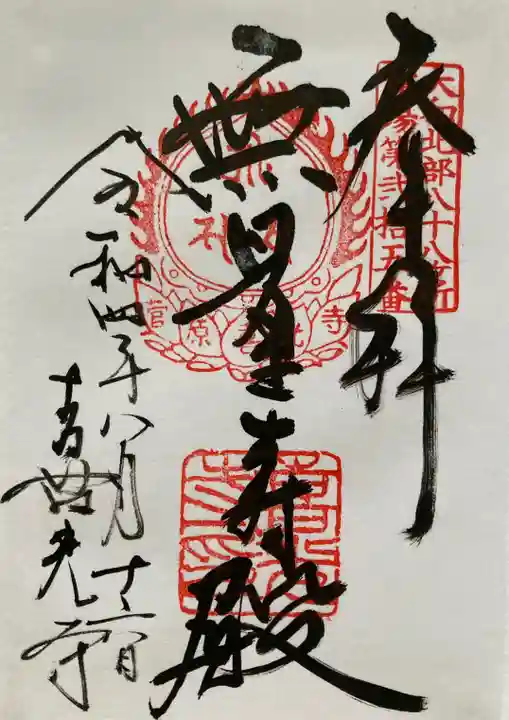 奉拝
大和北部八十八ヶ所
霊場第弐拾五番
無量寿殿
菅原 喜光寺
令和四年八月十六日
喜光寺